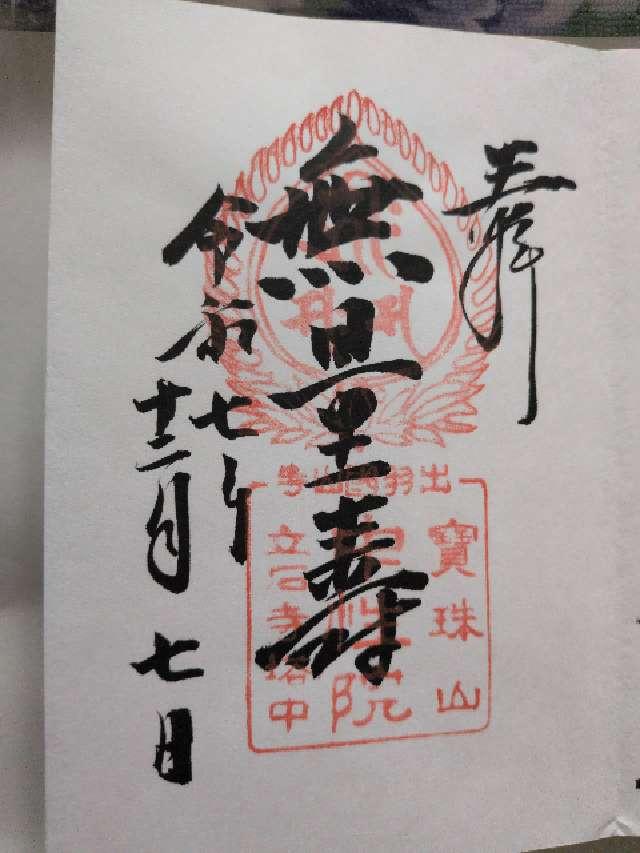 奉拝
無量壽
令和七年
十二月七日
出羽國山寺
寶珠山
中性院
立石寺塔中